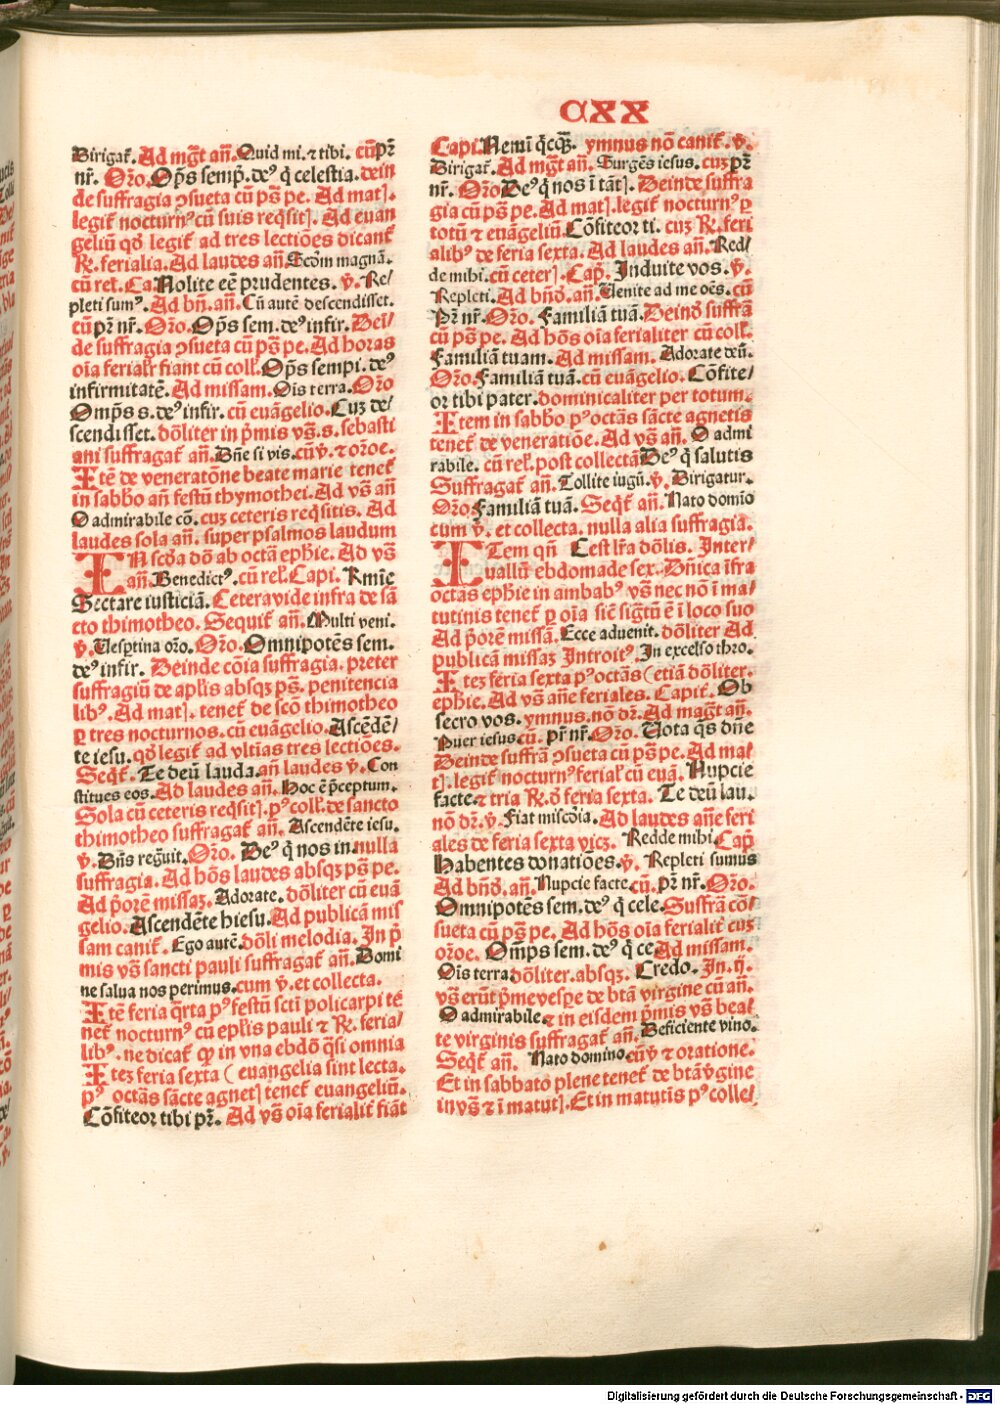 CXX
Dirigat̃. Ad mg̃t añ. Quid mi. ⁊ tibi. cū pr̃
nr̃. Oro̅. Op̄s semp̄. deꝰ q̄ celestia. dein
de suffragia ꝯsueta cū ps̄ pe. Ad matꝭ.
legit̃ nocturnꝰ cū suis reqsitꝭ. Ad euan
geliū qd̄ legit̃ ad tres lectiōes dicant̃
R̃. ferialia. Ad laudes añ. Scd̄m magnā.
cū rel. Ca. Nolite eē prudentes. ℣. Re/
pleti sumꝰ. Ad bñ. añ. Cū autē descendisset.
cū pr̃ nr̃. Oro̅. Op̄s sem. deꝰ infir. Dei̅/
de suffragia ꝯsueta cū ps̄ pe. Ad horas
oīa ferialr̃ fiant cū coll̃. Op̄s sempi. deꝰ
infirmitatē. Ad missam. Oīs terra. Oro̅
Omp̄s s. deꝰ infir. cū euāgelio. Cuz de/
scendisset. dōliter in p̄mis vs̄. s. sebasti
ani suffragat̃ añ. Bñe si vis. cū ℣. ⁊ orōe.
Itē de veneratōne beate marie tenet̃
in sabbo añ festū thymothei. Ad vs̄ añ
O admirabile cō. cuz ceteris reqsitis. Ad
laudes sola añ. super psalmos laudum
IN scd̄a dō ab octā eph̄ie. Ad vs̄
añ. Benedictꝰ. cū rel̃. Capi. Kmīe
Sectare iusticiā. Cetera vide infra de sā
cto thimotheo. Sequit̃ añ. Multi veni.
℣. Vesꝑtina oro̅. Oro̅. Omnipotēs sem.
deꝰ infir. Deinde cōia suffragia. preter
suffragiū de apl̄is absqz ps̄. penitencia
libꝰ. Ad matꝭ. tenet̃ de scō thimotheo
ꝑ tres nocturnos. cū euāgelio. Ascēdē/
te iesu. qd̄ legit̃ ad vltīas tres lectiōes.
Seqt̃. Te deū lauda. añ laudes ℣. Con
stitues eos. Ad laudes añ. Hoc ē p̄ceptum.
Sola cū ceteris reqsitꝭ. pꝰ coll̃. de sancto
thimotheo suffragat̃ añ. Ascendēte iesu.
℣. Dñs regūit. Oro̅. Deꝰ q̄ nos in. nulla
suffragia. Ad hōs laudes absqz ps̄ pe.
Ad p̄orē missaz. Adorate. dōliter cū euā
gelio. Ascendēte hiesu. Ad publicā mis
sam canit̃. Ego autē. dōli melodia. In p̄
mis vs̄ sancti pauli suffragat̃ añ. Domi
ne salua nos perimus. cum ℣. et collecta.
Itē feria q̄rta pꝰ festū scti̅ policarpi tē
net̃ nocturnꝰ cū epl̄is pauli ⁊ R̃. feria/
libꝰ. ne dicat̃ ꝙ in vna ebdō q̄si omnia
Itez feria sexta (euangelia sint lecta.
pꝰ octās sācte agnetꝭ tenet̃ euangeliū.
Cōfiteor tibi pr̃. Ad vs̄ oīa ferialit̃ fiāt
Capi. Nemī q̄cqꝫ. ymnus nō canit̃. ℣.
Dirigat̃. Ad mg̃t añ. Surgēs iesus. cuz pr̃
nr̃. Oro̅ Deꝰ q̄ nos ī tātꝭ. Deinde suffra
gia cū ps̄ pe. Ad matꝭ. legit̃ nocturnꝰ ꝑ
totū ⁊ euāgeliū. Cōfiteor ti. cuz R̃. feri
alibꝰ de feria sexta. Ad laudes añ. Red/
de mibi. cū ceterꝭ. Cap̄. Induite vos. ℣.
Repleti. Ad bñd̄. añ. Venite ad me oēs. cū
Pr̃ nr̃. Oro̅. Familiā tuā. Deind̄ suffrā
cū ps̄ pe. Ad hōs oīa ferialiter cū coll̃.
Familiā tuam. Ad missam. Adorate deū.
Oro̅. Familiā tuā. cū euāgelio. Cōfite/
or tibi pater. dominicaliter per totum.
Item in sabbo pꝰ octās sācte agnetis
tenet̃ de veneratiōe. Ad vs̄ añ. O admi
rabile. cū rel̃. post collectā Deꝰ q̄ salutis
Suffragat̃ añ. Tollite iugū. ℣. Dirigatur.
Oro̅ Familiā tuā. Seqt̃ añ. Nato domīo
cum ℣. et collecta. nulla alia suffragia.
ITem qn̄ C est lr̄a dōlis. Inter/
uallū ebdomade sex. Dñica īfra
octās eph̄ie in ambabꝰ vs̄ nec nō ī ma/
tutinis tenet̃ ꝑ oīa siē sig̅tū ē ī loco suo
Ad p̄orē missā. Ecce aduenit. dōliter Ad
publicā missaz Introitꝰ. In excelso thro.
Itez feria sexta pꝰ octās (etiā dōliter.
eph̄ie. Ad vs̄ añe feriales. Capit̃. Ob
secro vos. ymnus. nō dr̃. Ad mag̃t añ.
Puer iesus. cū. pr̃ nr̃. Oro̅. Vota q̄s dñe
Deinde suffrā ꝯsueta cū ps̄ pe. Ad ma/
tꝭ. legit̃ nocturnꝰ ferial̃ cū euā. Nupcie
facte. ⁊ tria R̃. d̄ feria sexta. Te deū lau.
nō dr̃. ℣. Fiat miscōia. Ad laudes añe feri
ales de feria sexta vicz. Redde mibi. Cap̄
Habentes donatiōes. ℣. Repleti sumus
Ad bñd̄. añ. Nupcie facte. cū. pr̃ nr̃. Oro̅.
Omnipotēs sem. deꝰ q̄ cele. Suffrā cō/
sueta cū ps̄ pe. Ad hōs oīa ferialit̃ cuz
orōe. Omp̄s sem. deꝰ q̄ ce Ad missam.
Oīs terra. dōliter. absqz. Credo. In. ij.
vs̄ erūt p̄me vesꝑe de btā virgine cū añ.
O admirabile. ⁊ in eisdem p̄mis vs̄ bea/
te virginis suffragat̃ añ. Deficiente vino.
Seqt̃ añ. Nato domino. cū ℣ ⁊ oratione.
Et in sabbato plene tenet̃ de btā v̄gine
in vs̄ ⁊ ī matutꝭ. Et in matutis pꝰ colle/
Digitalisierung gefördert durch die Deutsche Forschungsgemeinschaft - DFG